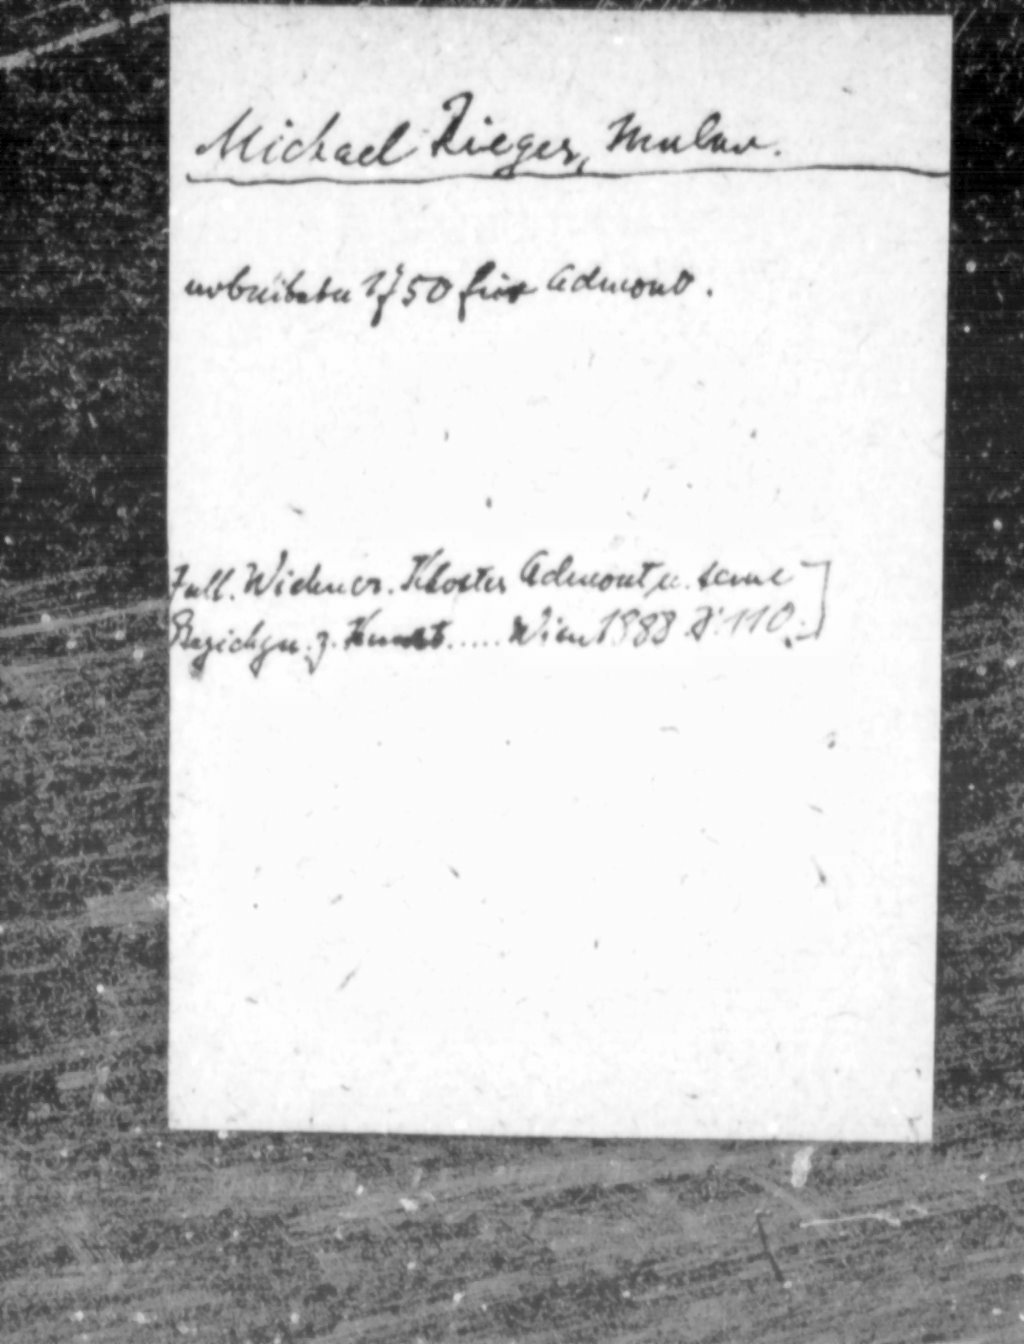 Michael Rieger, Maler.
arbeitete 1750 für Admont.
[Wichner. Kloster Admont u. seine
Beziehgn. z. Kunst ..... Wien 1888 S. 110.]